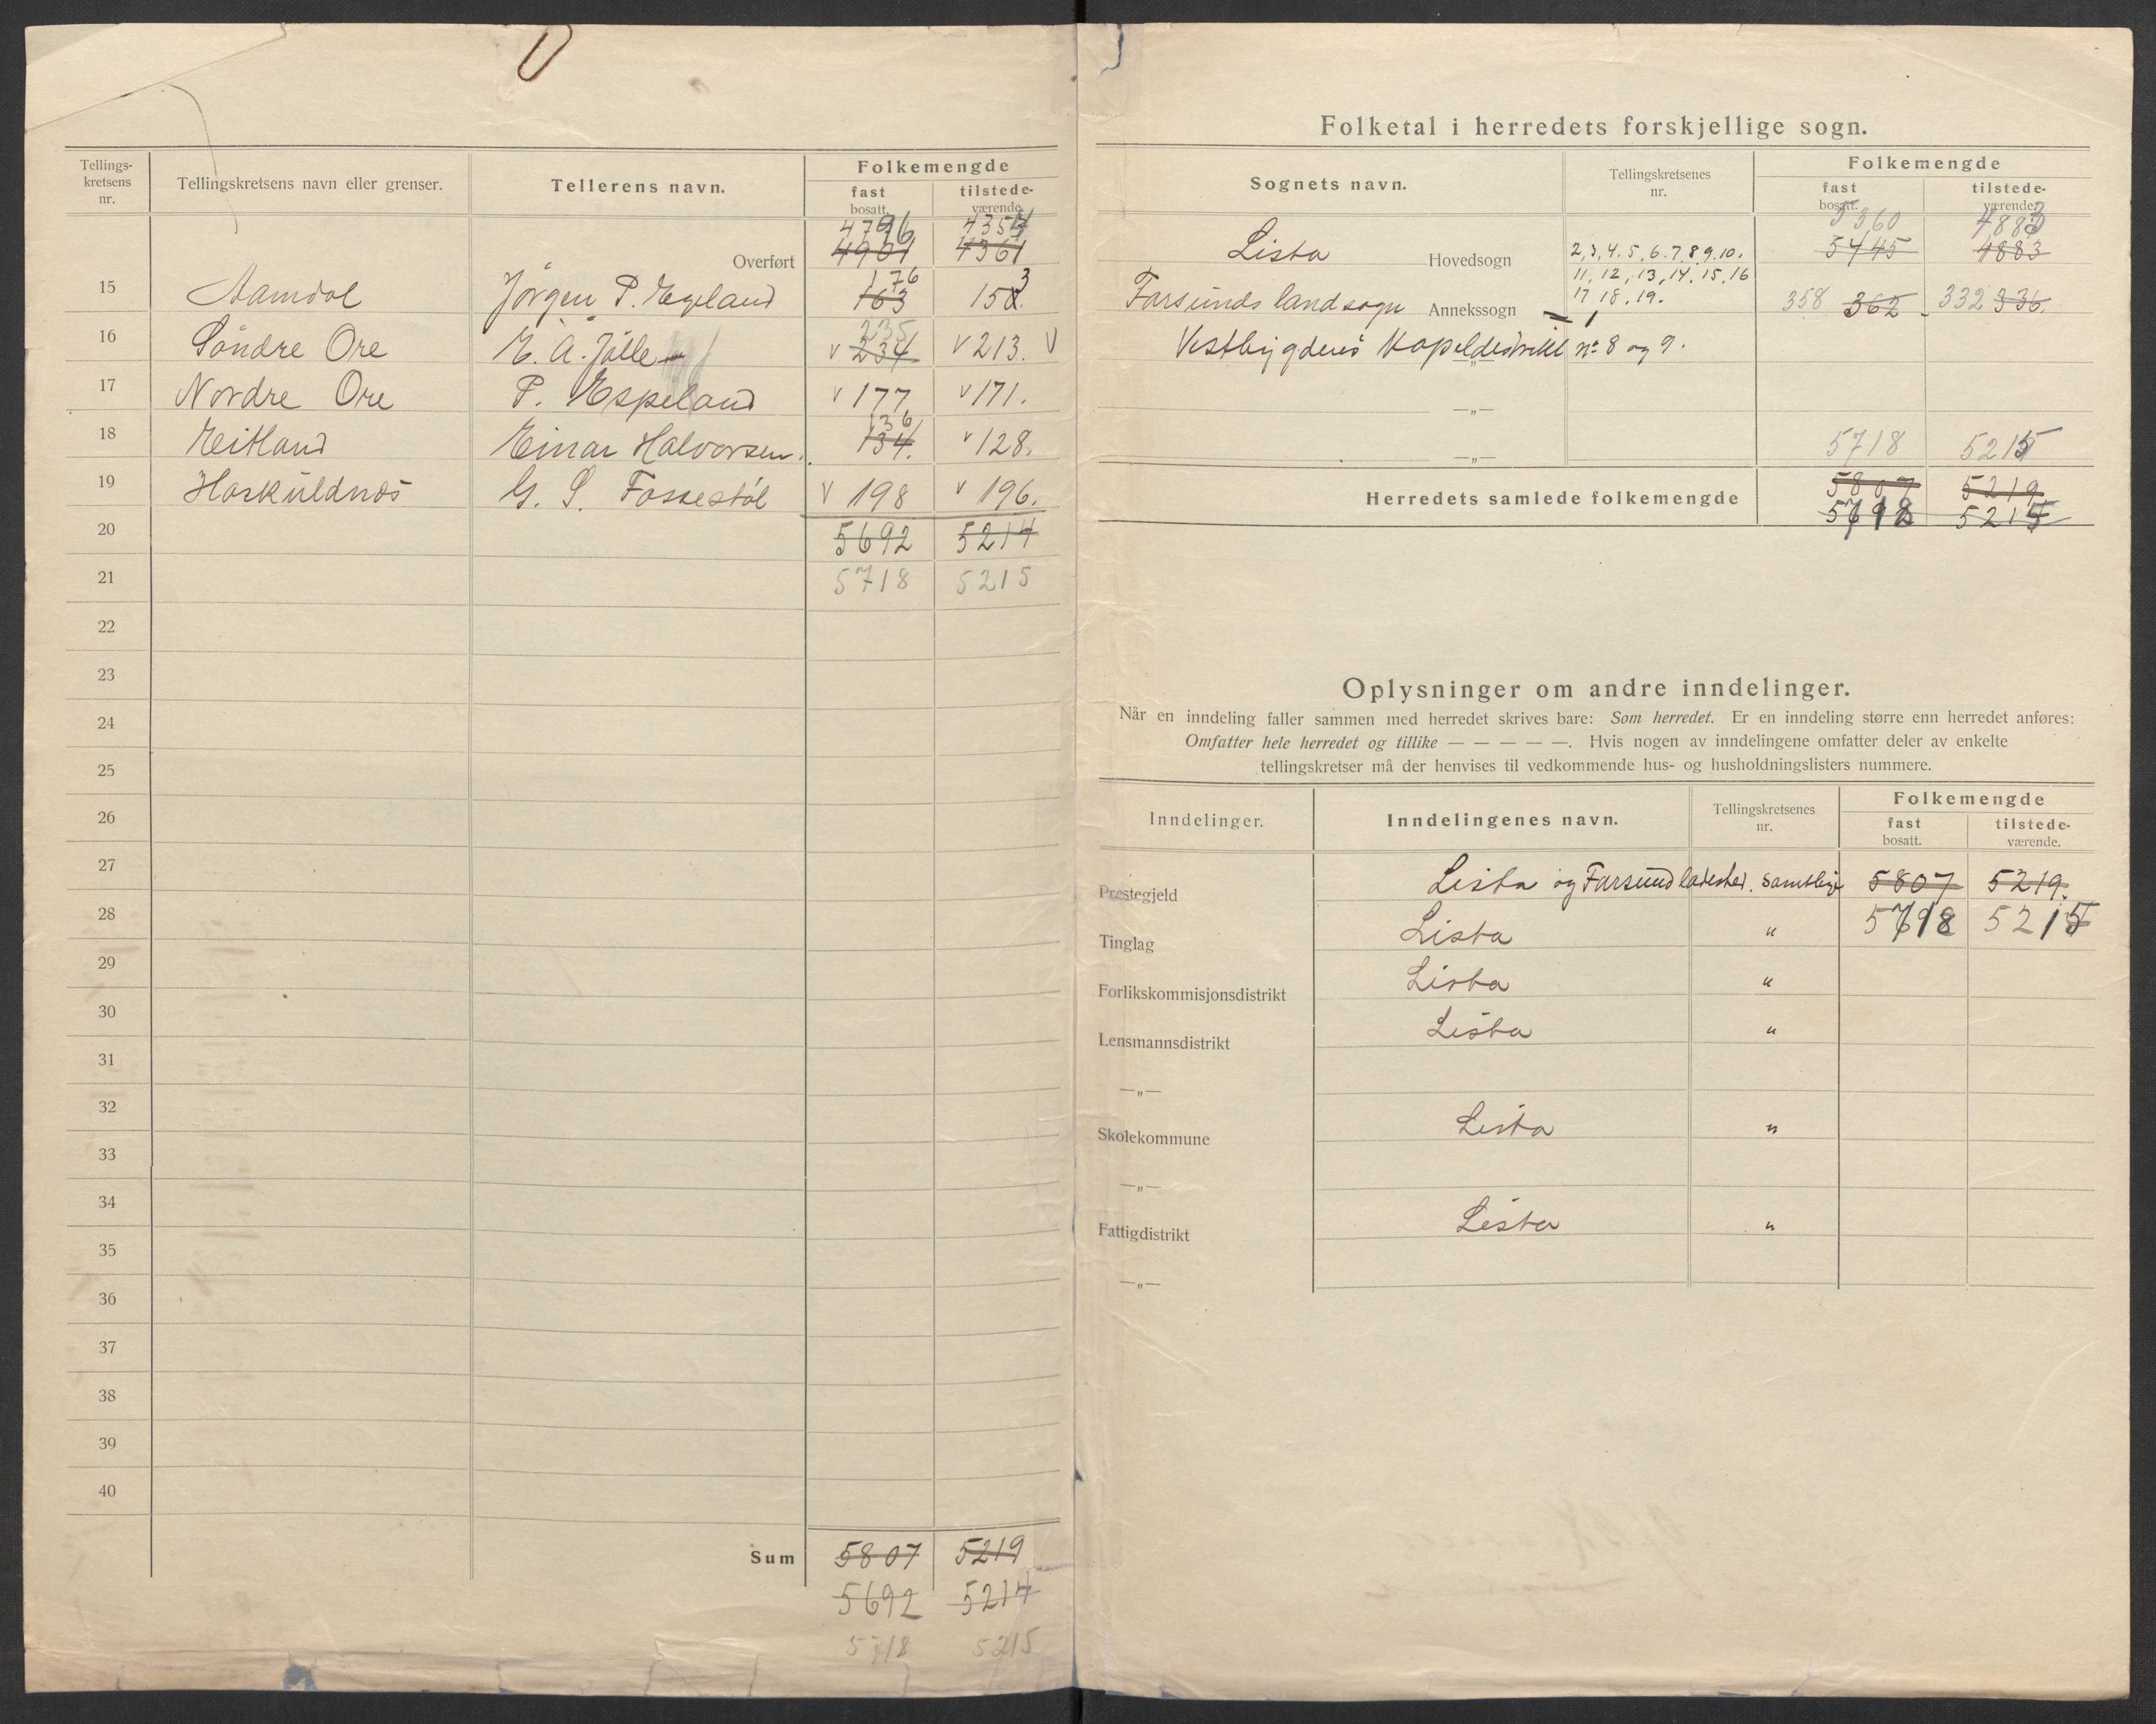 Tellings-
kretsens
nr.
Tellingskretsens navn eller grenser.
Tellerens navn.
Folkemengde
fast
bosatt.
tilstede-
værende.
4796 4354
Overført 4901 4361
176 3
15 Aamdal Jörgen P. Egeland 163 152
235
16 Söndre Ore E. A. Jölle v 234 v 213. v
17 Nordre Ore P. Espeland v 177 v 171.
136
18 Eitland Einar Halvorsen. 134. v 128.
19 Haskuldnæs G. S. Fossestöl v 198 v 196.
20 5692 5214
21 5718 5215
22
23
24
25
26
27
28
29
30
31
32
33
34
35
36
37
38
39
40
Sum 5807 5219
5692 5214
5718 5215
Folketal i herredets forskjellige sogn.
Sognets navn.
Tellingskretsenes
nr.
Folkemengde
fast
bosatt.
tilstede-
værende.
5360 4883
Lista Hovedsogn 2, 3, 4. 5, 6. 7. 8, 9. 10. 5445 4883
11, 12, 13, 14. 15, 16
17 18. 19.
Farsunds landsogn Annekssogn 1 358 362 332 336.
Vestbygdens Kapeldistrikt no 8 og 9.
—„—
—„—
—„— 5718 5215
Herredets samlede folkemengde 5807 5219
5718 5215
Oplysninger om andre inndelinger.
Når en inndeling faller sammen med herredet skrives bare: Som herredet. Er en inndeling større enn herredet anføres:
Omfatter hele herredet og tillike — — — — —. Hvis nogen av inndelingene omfatter deler av enkelte
tellingskretser må der henvises til vedkommende hus- og husholdningslisters nummere.
Inndelinger.
Inndelingenes navn.
Tellingskretsenes
nr.
Folkemengde
fast
bosatt.
tilstede-
værende.
Prestegjeld Lista og Farsund ladested. samtlige 5807 5219.
Tinglag Lista " 5718 5215
Forlikskommisjonsdistrikt Lista "
Lensmannsdistrikt Lista "
—„—
Skolekommune Lista "
—„—
Fattigdistrikt Lista "
—„—